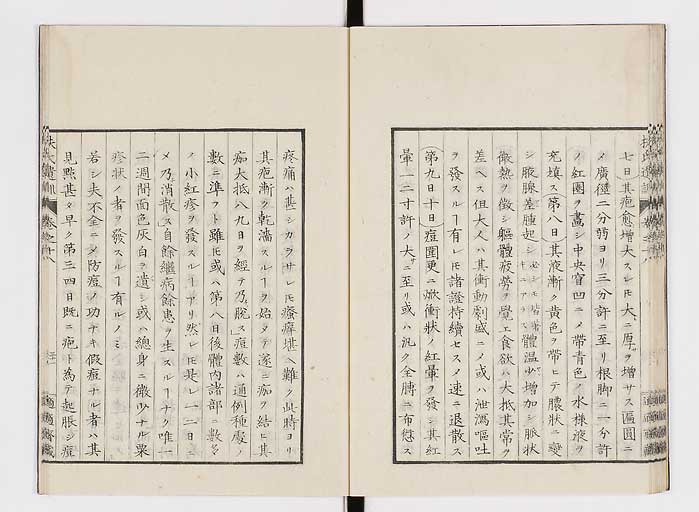 七日)其疱愈增大スレ𪜈大ニ厚ヲ增サス匾圓ニ
メ廣徑二分弱ヨリ三分許ニ至リ根脚ニ一分許
ノ紅圈ヲ畵シ中央窅凹ニメ帶青色ノ水様液ヲ
充填ス(第八日)其液漸ク黄色ヲ帶ヒテ膿狀ニ變
シ腋腺差腫起シ體温少ク增加シ脈狀
微熱ヲ徴シ軀體疲勞ヲ覺エ食欲ハ大抵其常ヲ
差ヘス但大人ハ其衝動劇盛ニメ或ハ泄瀉嘔吐
ヲ發スルヿ有レ𪜈諸證持續セスメ速ニ退散ス
(第九日十日)痘圍更ニ焮衝狀ノ紅暈ヲ發シ其紅
暈一二寸許ノ大サニ至リ或ハ汎ク全膊ニ布蔓ス
疼痛ハ甚シカラサレ𪜈瘙癢堪ヘ難ク此時ヨリ
其疱漸ク乾濇スルーヲ始メテ遂ニ痂ヲ結ヒ其
痂大抵八九日ヲ經テ乃脱ス痘數ハ通例種處ノ
數ニ準フト雖𪜈或ハ第八日後體内諸部ニ數多
ノ小紅疹ヲ發スルヿアリ然レ𪜈是レ一二日ヲ
メ乃消散ス自餘繼病餘患ヲ生スルヿナク唯一
二週間面色灰白ヲ遺シ或ハ總身ニ微少ナル粟
疹狀ノ者ヲ發スルヿ有ルノミ
若シ夫不全ニメ防痘ノ功ナキ假痘ナル者ハ其
見點甚タ早ク第三四日既ニ疱ト為テ起脹シ痘